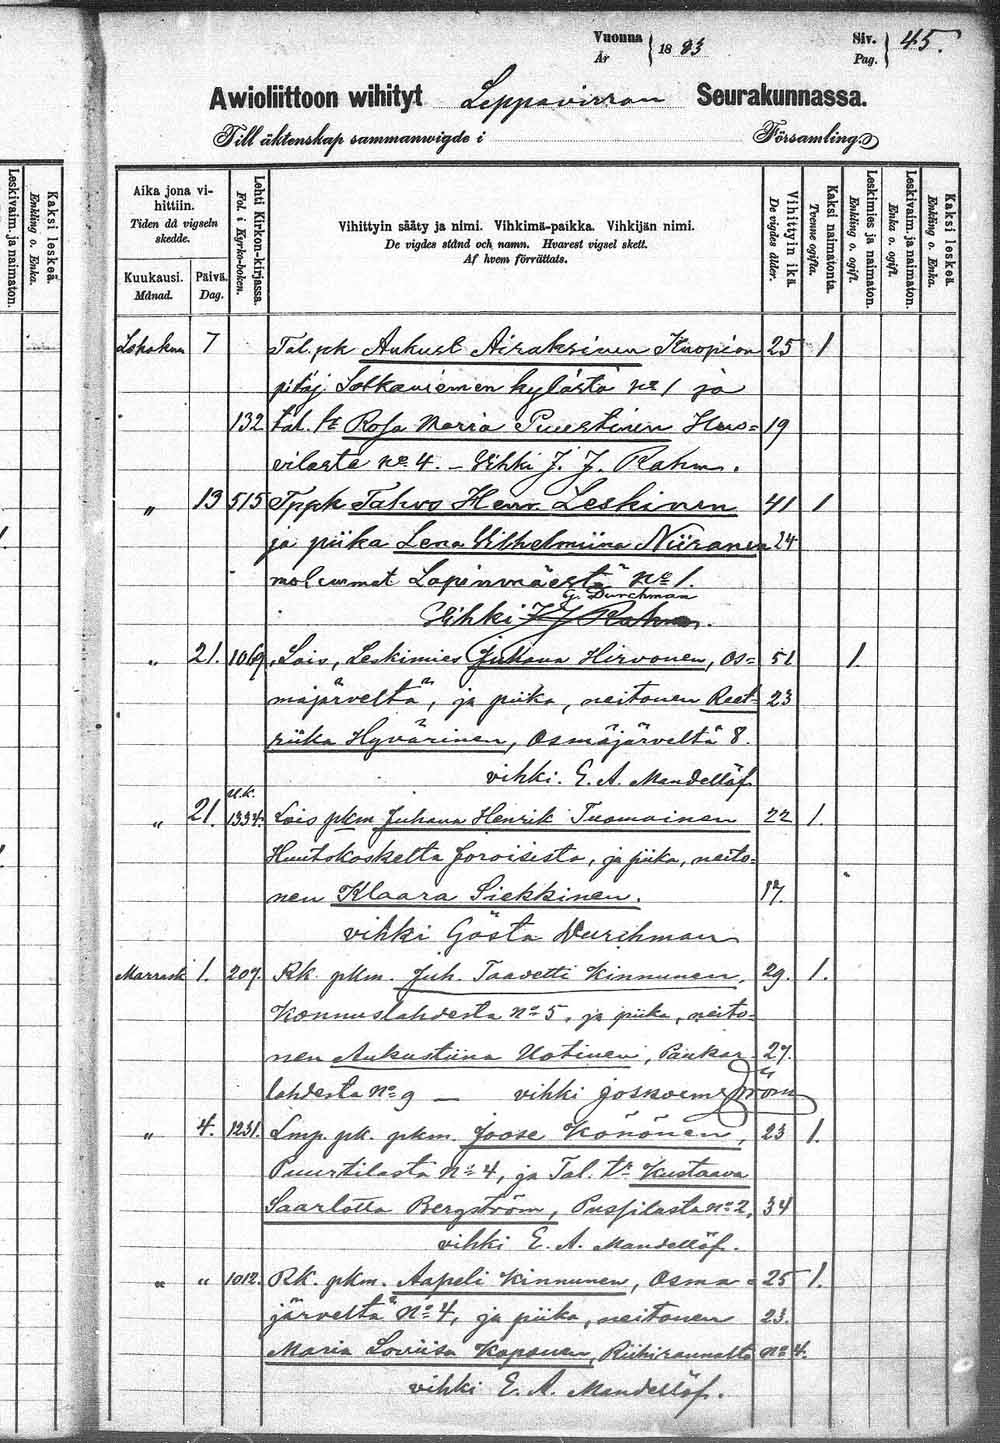 Vuonna
År
1883
Siv.
Pag.
45.
Awioliittoon wihityt Leppavirran Seurakunnassa.
Till äktenskap sammanwigde i Församling.
Leskivaim. ja naimaton.
Enkling o. Enka.
Kaksi leskeä.
Aika jona vi-
hittiin.
Tiden då vigseln
skedde.
Kuukausi.
Månad.
Päivä.
Dag.
Lehti Kirkon-kirjassa.
Fol. i Kyrko-boken.
Vihittyin sääty ja nimi. Vihkimä-paikka. Vihkijän nimi.
De vigdes stånd och namn. Hvarest vigsel skett.
Af hvem förrättats.
Vihittyin ikä
De vigdes ålder.
Kaksi naimatonta.
Tvenne ogifta.
Leskimies ja naimaton.
Enkling o. ogift.
Leskivaim. ja naimaton.
Enka o. ogift.
Kaksi leskeä.
Enkling o. Enka.
Lokakuu 7 Tal. pk Aukust Airaksinen Kuopion 25 1
pitäj. Sotkaniemen kylästä No 1 ja
132 tal. tr Rosa Maria Puustinen Hus= 19
vilasta No 4. – Vihki J. J. Rahm.
" 13 515 Tppk Tahvo Henr. Leskinen 41 1
ja piika Lena Vilhelmiina Niiranen 24
molemmat Lapinmäestä No 1.
G. Durchman
Vihki J J Rahm.
" 21. 1069. Lois, Leskimies Juhana Hirvonen, Os= 51 1.
majärveltä, ja piika, neitonen Reet= 23
riika Hyvärinen, Osmajärveltä 8.
vihki. E. A. Mandellöf
" 21. u.k. 1334. Lois pkm Juhana Henrik Tuomainen 22 1.
Huutokoskelta Joroisista, ja piika, neito=
nen Klaara Siekkinen. 17.
vihki Gösta Durchman
Marrask 1. 207. Rk pkm. Juh. Taavetti Kinnunen, 29. 1.
Konnuslahdesta No 5, ja piika, neito=
nen Aukustiina Uotinen, Paukar 27.
lahdesta No 9 —
" 4. 1231. Lmp. pk. pkm. Joose Könönen, 23 1.
Puurtilasta No 4, ja Tal. tr Kustaava
Saarlotta Bergström, Pussilasta No 2, 34
vihki E. A. Mandellöf.
" " 1012. Rk. pkm. Aapeli Kinnunen, Osma= 25 1.
järveltä No 4, ja piika, neitonen 23.
Maria Loviisa Kaponen, Riihirannalta No 4.
vihki E. A. Mandellöf.